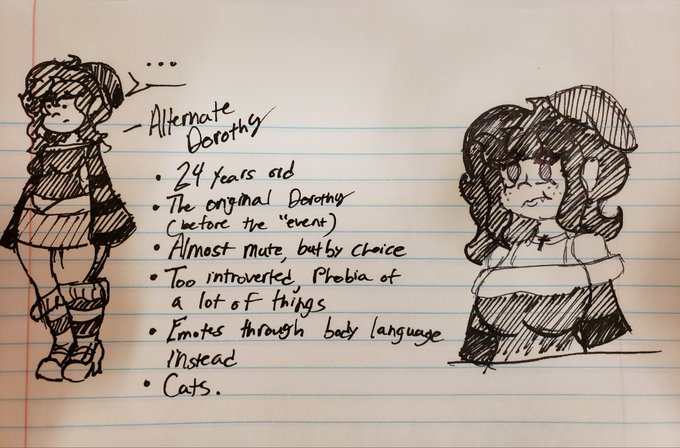 ...
Alternate
Dorothy
• 24 years old
• The original Dorothy
(before the "event")
• Almost mute, but by choice
• Too introverted, Phobia of
a lot of things
• Emotes through body language
instead
• Cats.